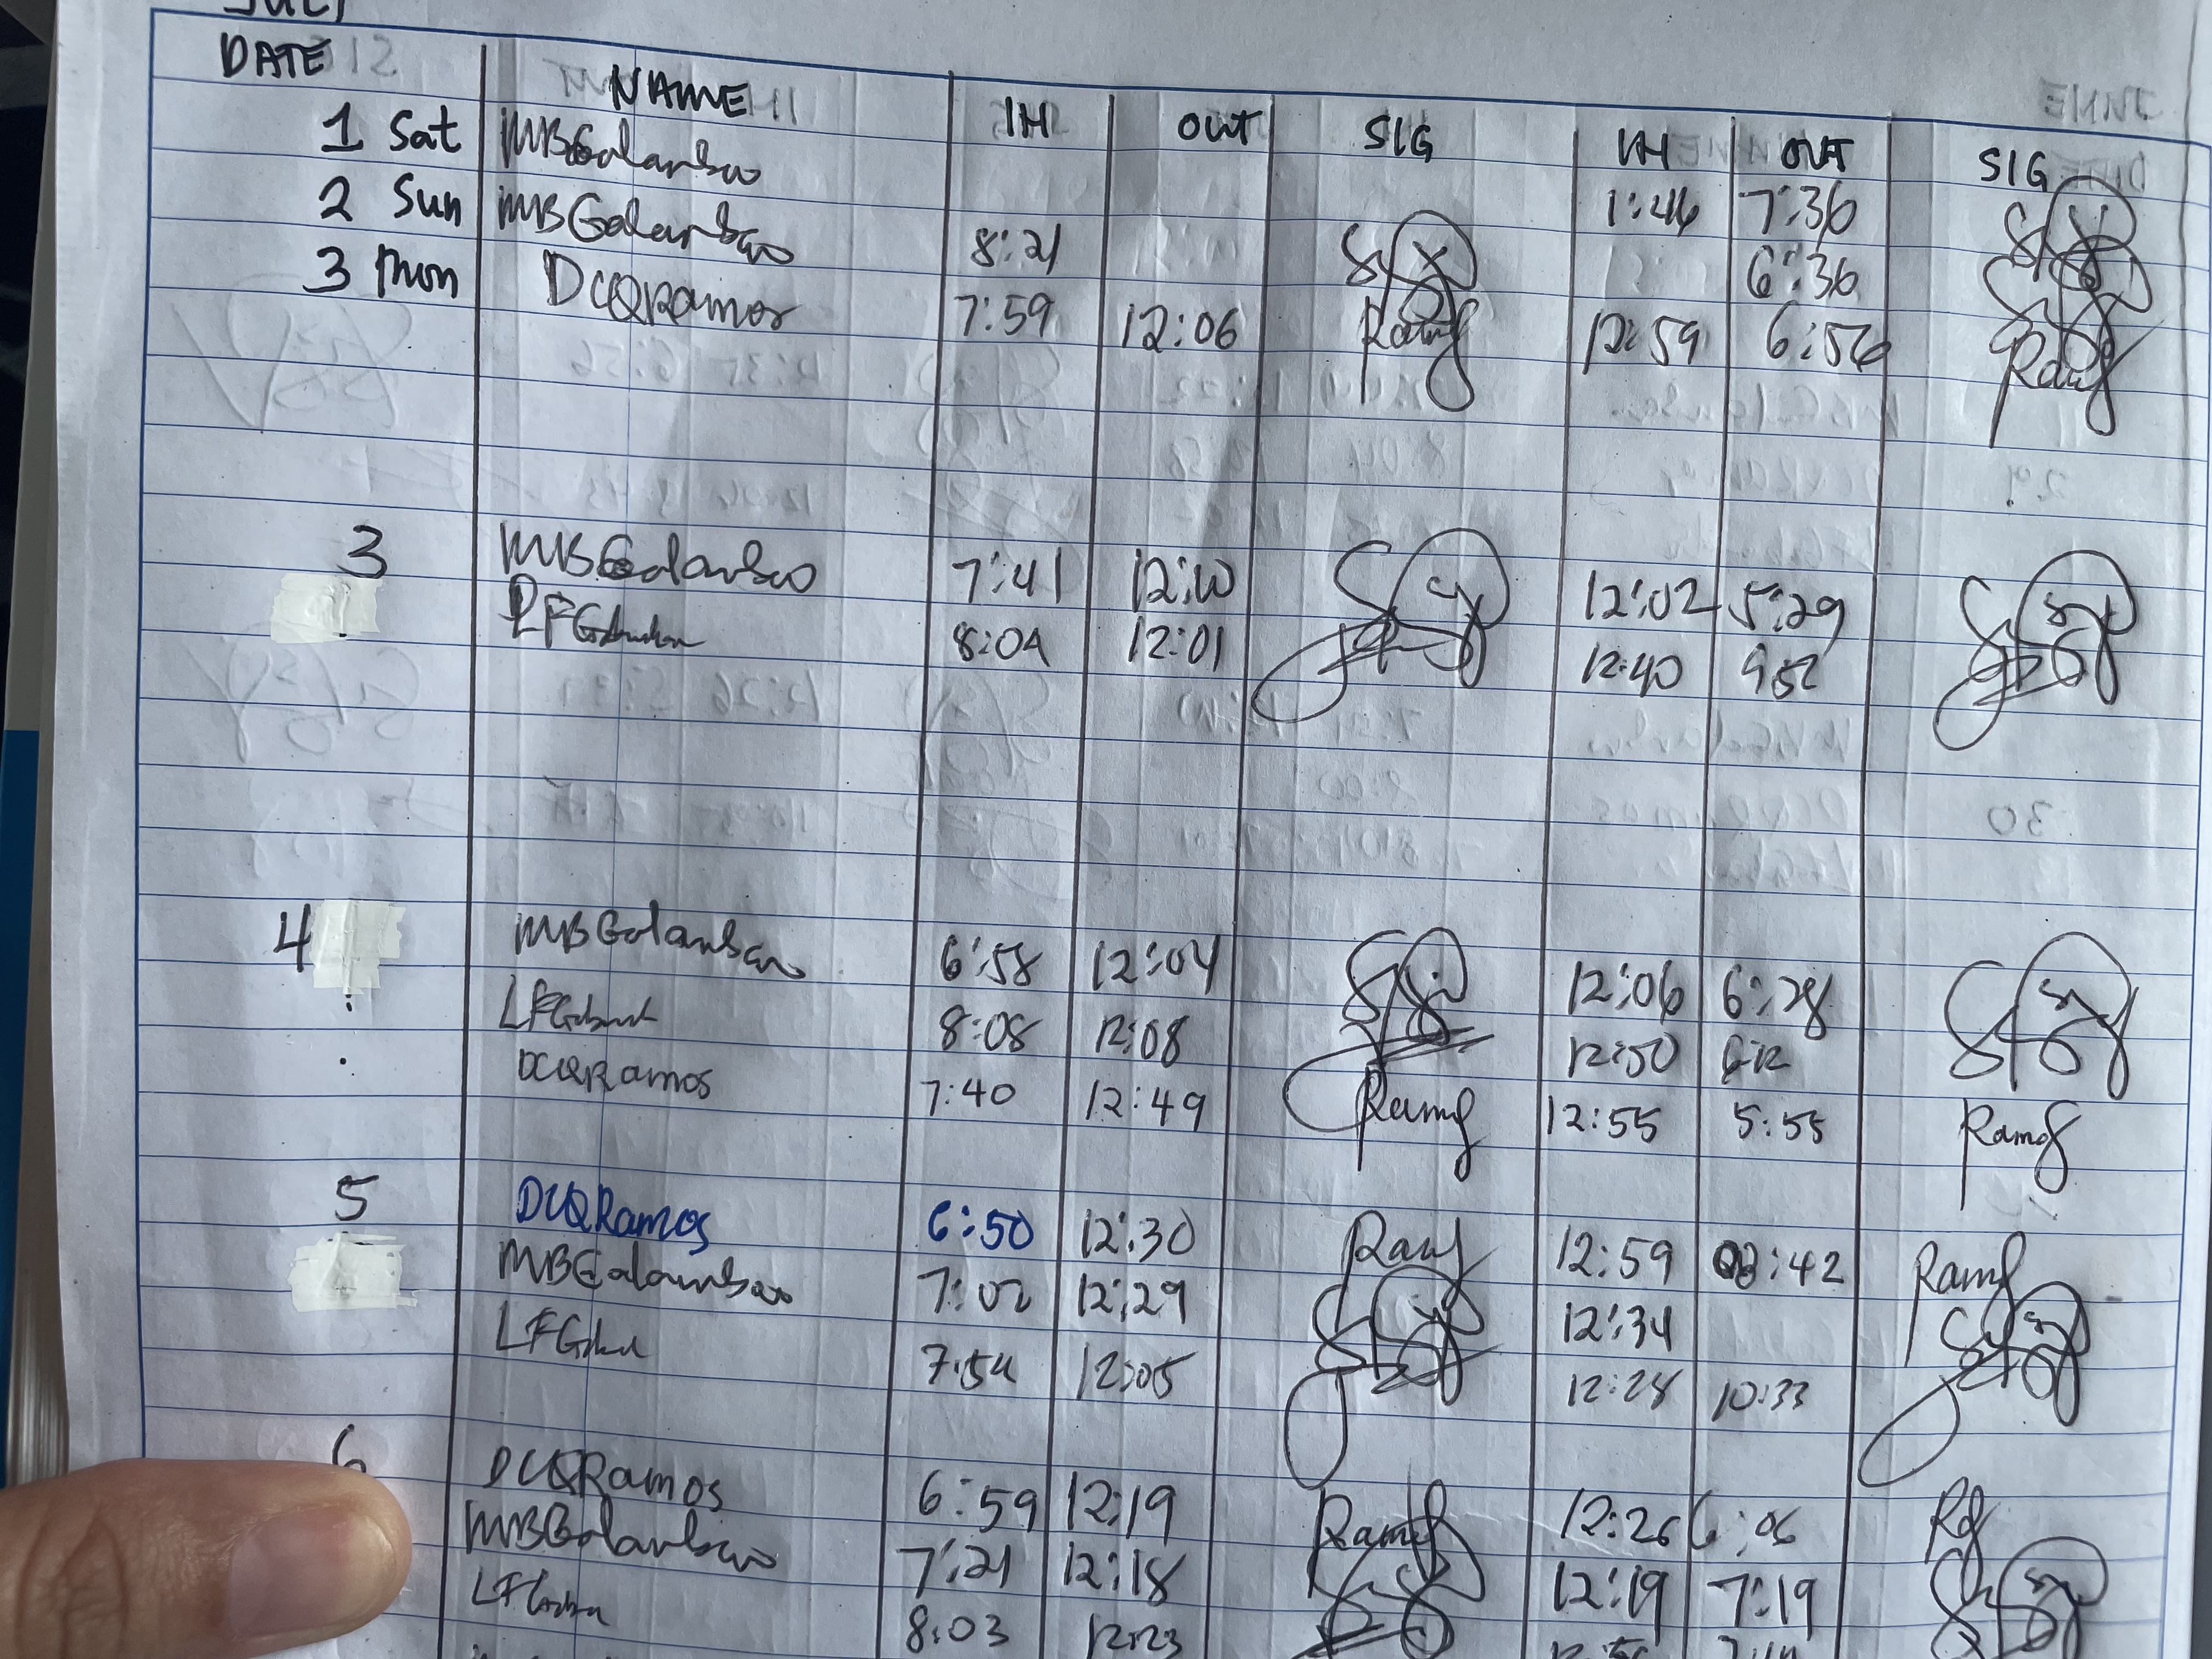 JULY
DATE NAME IN OUT SIG IN OUT SIG
1 Sat MBGalambao 1:46 7:36
2 Sun MBGalambao 8:21 6:36
3 Mon DCQRamos 7:59 12:06 Ramos 12:59 6:56 Ramos
3 MBGalambao 7:41 12:10 12:02 5:29
8:04 12:01 12:40 9:52
4 MBGalambao 6:58 12:04 12:06 6:28
8:08 12:08 12:50 6:12
DCQRamos 7:40 12:49 Ramos 12:55 5:55 Ramos
5 DCQRamos 6:50 12:30 12:59 :42
MBGalambao 7:02 12:29 12:34
7:54 12:05 12:28 10:33
6 DCQRamos 6:59 12:19 Ramos 12:26 6:06
MBGalambao 7:21 12:18 12:19 7:19
8:03 12:23